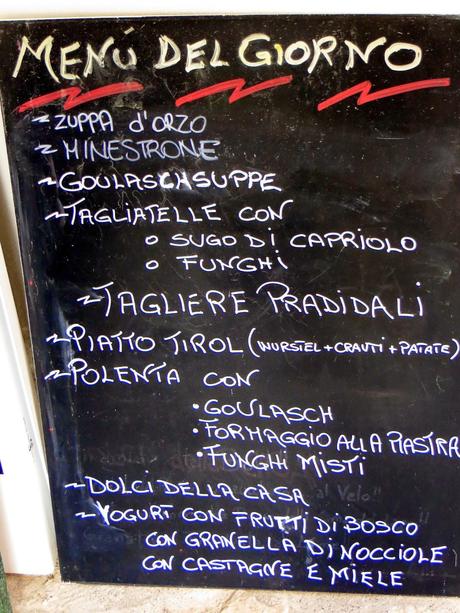 MENÚ DEL GIORNO
~ZUPPA d'ORZO
~MINESTRONE
~GOULASCHSUPPE
~TAGLIATELLE CON
o SUGO DI CAPRIOLO
o FUNGHI
~TAGLIERE PRADIDALI
~PIATTO TIROL (WURSTEL+CRAUTI+PATATE)
~POLENTA CON
•GOULASCH
•FORMAGGIO ALLA PIASTRA
•FUNGHI MISTI
~DOLCI DELLA CASA
~YOGURT CON FRUTTI DI BOSCO
CON GRANELLA DI NOCCIOLE
CON CASTAGNE E MIELE